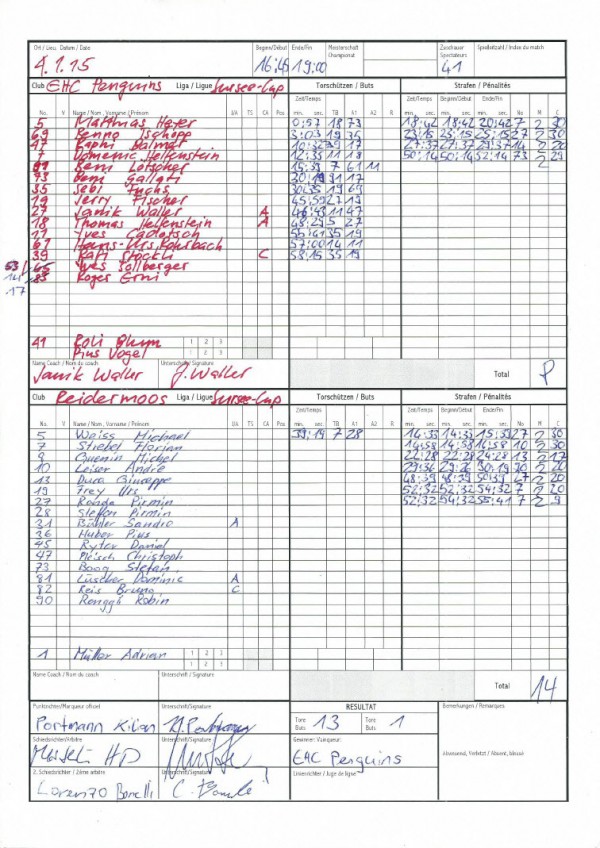 Ort / Lieu, Datum / Date Beginn/Début Ende/Fin Meisterschaft Championnat Zuschauer Spectateurs Spielzahl / Index du match
4.1.15 16:45 19:00 41
Club EHC Penguins Liga / Ligue Sursee-Cup Torschützen / Buts Strafen / Pénalités
Zeit/Temps Zeit/Temps Beginn/Début Ende/Fin
No. V Name / Nom, Vorname / Prénom UA TS CA Pos min. sec. TB A1 A2 R min. sec. min. sec. min. sec. No M C
5 Matthias Hafer 0:57 18 73 18:42 18:42 20:42 7 2 30
69 Benno Tschopp 3:03 19 35 23:15 23:15 25:15 27 2 30
47 Raphi Dalmas 10:32 39 17 27:37 27:37 29:37 14 2
7 Domenic Helfenstein 12:35 11 18 50:14 50:14 52:14 73 2 29
Beni Lötscher 15:39 7 61 11
73 Beni Gallati 20:19 31 17
35 Sebi Fuchs 30:35 19 69
19 Jerry Fischer 45:59 27 19
27 Janik Waller A 46:43 11 47
18 Thomas Helfenstein A 48:29 5 27
11 Yves Cadotsch 55:41 35 19
61 Hans-Urs Rohrbach 57:00 14 11
39 Rafi Stöckli C 58:15 35 19
53 Yves Sollberger
14
.17 Roger Erni
41 Roli Blum 1 2 3
Pius Vogel 1 2 3
Name Coach / Nom du coach Unterschrift / Signature
Janik Waller J. Waller Total P
Club Reidermoos Liga / Ligue Sursee-Cup Torschützen / Buts Strafen / Pénalités
Zeit/Temps Zeit/Temps Beginn/Début Ende/Fin
No. V Name / Nom, Vorname / Prénom UA TS CA Pos min. sec. TB A1 A2 R min. sec. min. sec. min. sec. No M C
5 Weiss Michael 39:19 7 28 14:33 14:33 15:39 27 2 30
7 Stiebi Florian 14:58 14:58 16:58 10 2 30
9 Quenin Michel 22:28 22:28 24:28 13 2 17
10 Leiser André 29:36 30:19 2 20
13 Dura Giuseppe 48:39 48:39 50:39 2 20
19 Frey Urs 52:32 52:32 54:32 7 2 20
27 Rohde Pirmin 52:32 54:32 55:41 7 2 9
28 Steffen Pirmin
31 Bühler Sandro A
36 Huber Pius
45 Ryter Daniel
47 Christoph
73 Boog Stefan
81 Lüscher Dominic A
82 Reis Bruno C
90 Renggli Robin
1 Müller Adrian 1 2 3
1 2 3
Name Coach / Nom du coach Unterschrift / Signature
Total 14
Punktrichter/Marqueur officiel Unterschrift/Signature RESULTAT Bemerkungen / Remarques
Portmann Kilian K. Portmann Tore Buts 13 Tore Buts 1
Schiedsrichter/Arbitre Unterschrift/Signature Gewinner/Vainqueur:
HP EHC Penguins Abwesend, Verletzt / Absent, blessé
2. Schiedsrichter / 2ème arbitre Unterschrift/Signature Linienrichter / Juge de ligne:
Lorenzo Bonelli